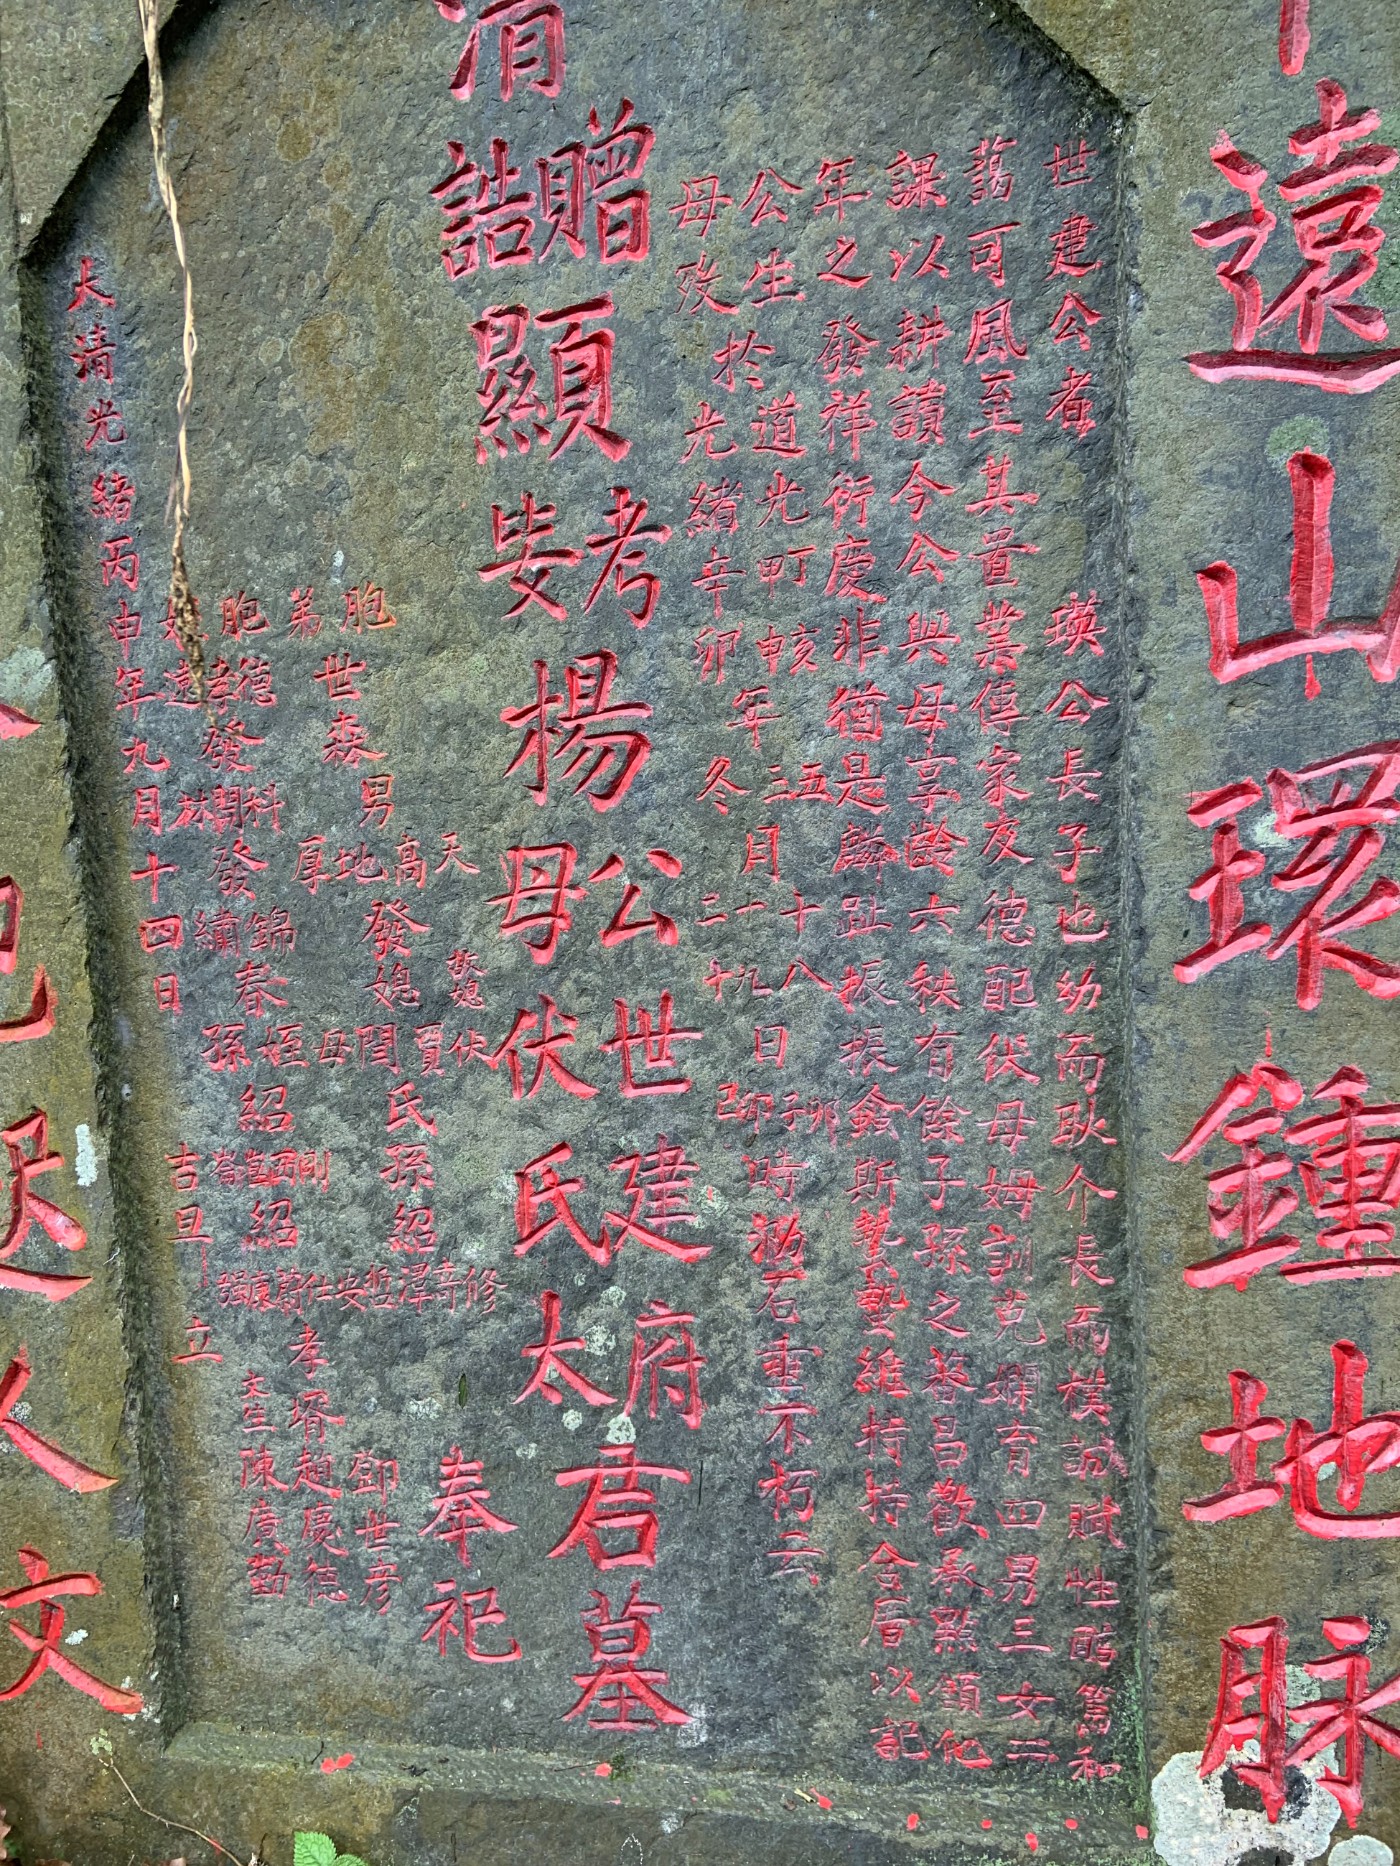 遠山環鍾地脉
世建公者瑛公長子也幼而耿介長而樸誠賦性酷篤和
藹可風至其置業傳家友德配伏母姆訓克嫻育四男三女二
課以耕讀今公與母享齡六秩有餘子孫之蕃昌歡承點頷他
年之發祥衍慶非猶是麟趾振振僉斯蟄蟄維持持合厝以記
公生於道光甲申年三月十九日卯時泐石垂不朽云
丁亥 五十八
母歿 光緒辛卯 冬 二十
清
誥贈
顯考妣楊公母伏世建氏府太君墓
奉祀
胞弟世森
男天高地厚發媳伏賈閆氏孫紹修奇澤哲安仕蔚康強
胞姪孝德發科開林發錦繡春
姪孫紹剛西崑崙紹
孝壻趙慶德
鄧世彦
文生陳廣勤
大清光緒丙申年九月十四日吉旦立
人文